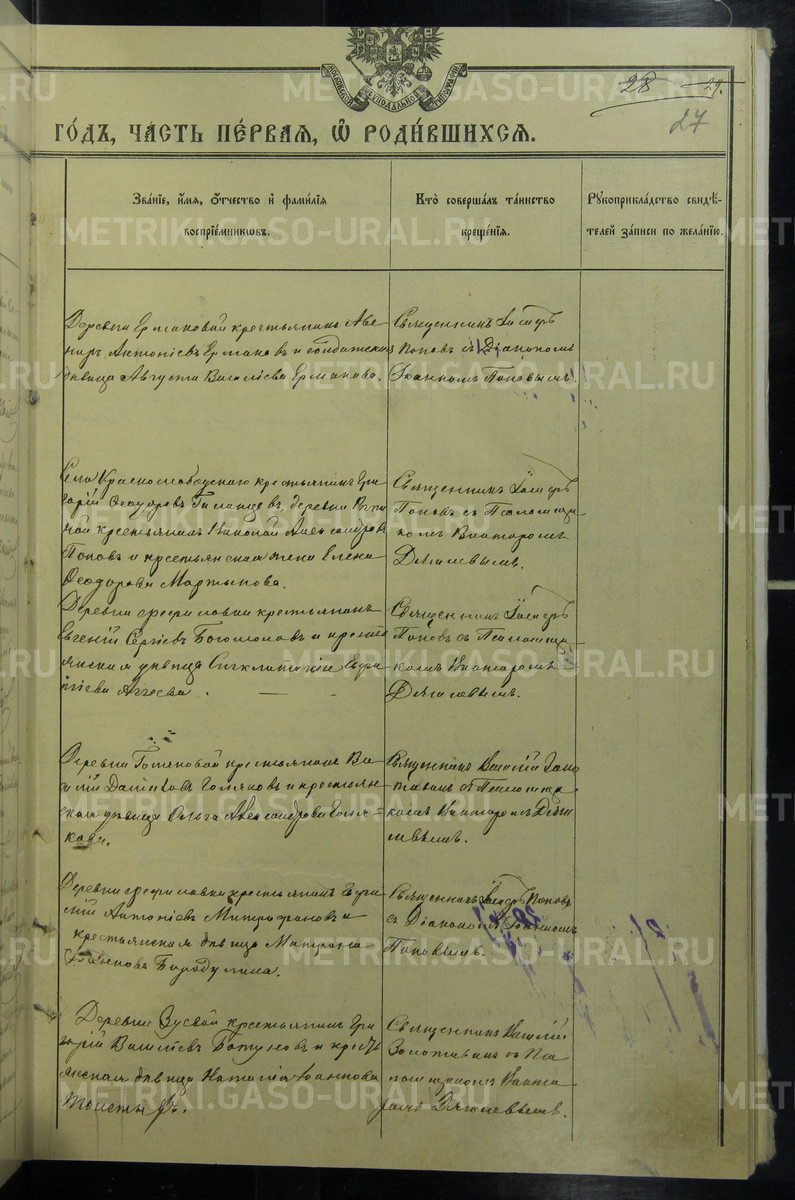 МОСКОВСКОЙ СУНОДАЛЬНОЙ ТИПОГРАФІИ
28 29.
27
ГО́ДЪ, ЧА́СТЬ ПЕ́РВАЯ, Ѡ҆ РОДИ́ВШИХСЯ.
Зва́нїе, и҆́мя, ѻ҆́тчество и҆ фами́лїя
воспрїе́мниковъ.
Кто̀ соверша́лъ та́инство
креще́нїя.
Рукоприкла́дство свидѣ́-
телей за́писи по жела́нїю.
Деревни Ермаковой крестьянинъ Аве-
ниръ Антоніевъ Ермаковъ и солдатская
дѣвица Августа Василіева Ермакова.
Священникъ
Поповъ съ Діакономъ
Іоанномъ Поповымъ.
Села Краснослободскаго крестьянинъ Гри-
горій Ѳеодоровъ деревни
крестьянинъ Николай Александровъ
Поповъ и крестьянская жена Елена
Ѳеодорова Мартынова.
Священникъ
Поповъ съ Псаломщи-
комъ Викторомъ
Дягилевымъ.
Деревни крестьянинъ
Евгеній Сергіевъ Богомоловъ и кресть-
янская дѣвица Синклитикія
Аггеева.
Священникъ
Поповъ съ Псаломщи-
комъ Викторомъ
Дягилевымъ.
Деревни крестьянинъ Ва-
силій Даніиловъ Голяковъ и крестьян-
ская дѣвица Ольга Александрова Голя-
кова.
Священникъ Василій Золо-
тавинъ съ Псаломщи-
комъ Викторомъ Дяги-
левымъ.
Деревни крестьянинъ
Антоніевъ Митрофановъ и
крестьянская дѣвица Матрона
Бородулина.
Священникъ Поповъ
съ Діакономъ Іоанномъ
Поповымъ.
Деревни Зуевой крестьянинъ Гри-
горій Василіевъ и кресть-
янская дѣвица Наталія Іоаннова
Священникъ Василій
Золотавинъ съ Пса-
ломщикомъ Викто-
ромъ Дягилевымъ.
METRIKI.GASO-URAL.RU